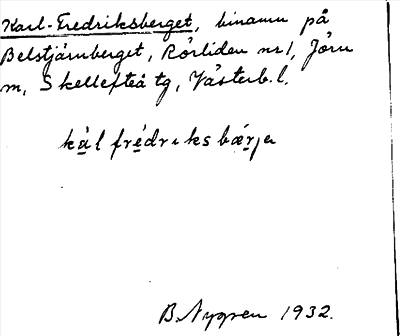 Karl-Fredriksberget, binamn på
Belstjärnberget, Rörliden nr 1, Jörn
sn, Skellefteå tg, Västerb. l.
kàl frédrıksbǽrje
B. Nygren 1932.